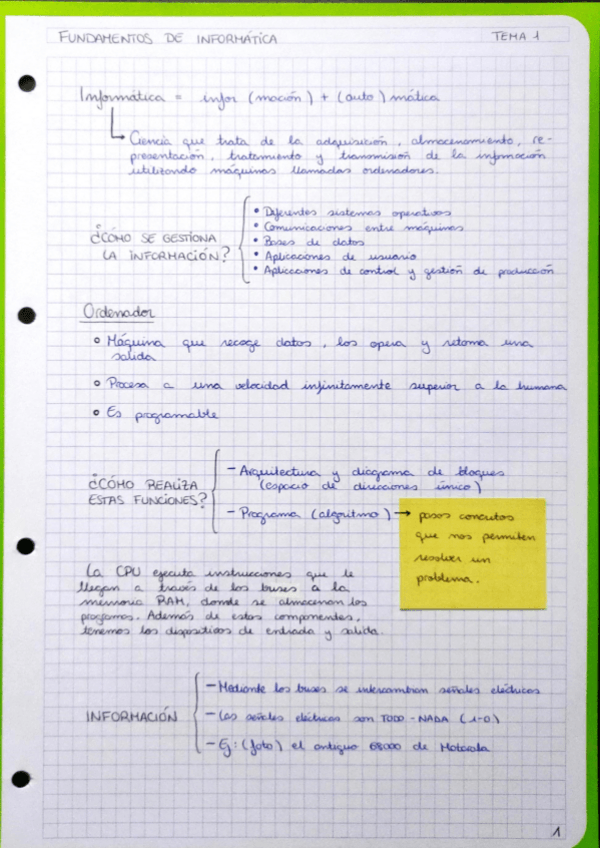 FUNDAMENTOS DE INFORMÁTICA
TEMA 1
Informática = infor (mación) + (auto) mática
Ciencia que trata de la adquisición, almacenamiento, re-
presentación, tratamiento y transmisión de la información
utilizando máquinas llamadas ordenadores.
¿CÓMO SE GESTIONA
LA INFORMACIÓN?
• Diferentes sistemas operativos
• Comunicaciones entre máquinas
• Bases de datos
• Aplicaciones de usuario
• Aplicaciones de control y gestión de producción
Ordenador
• Máquina que recoge datos, los opera y retorna una
salida
• Procesa a una velocidad infinitamente superior a la humana
• Es programable
¿CÓMO REALIZA
ESTAS FUNCIONES?
- Arquitectura y diagrama de bloques
(espacio de direcciones único)
- Programa (algoritmo) →
pasos concretos
que nos permiten
resolver un
problema.
La CPU ejecuta instrucciones que le
llegan a través de los buses a la
memoria RAM, donde se almacenan los
programas. Además de estos componentes,
tenemos los dispositivos de entrada y salida.
INFORMACIÓN
- Mediante los buses se intercambian señales eléctricas
- Las señales eléctricas son TODO-NADA (1-0)
- Ej: (foto) el antiguo 68000 de Motorola
1